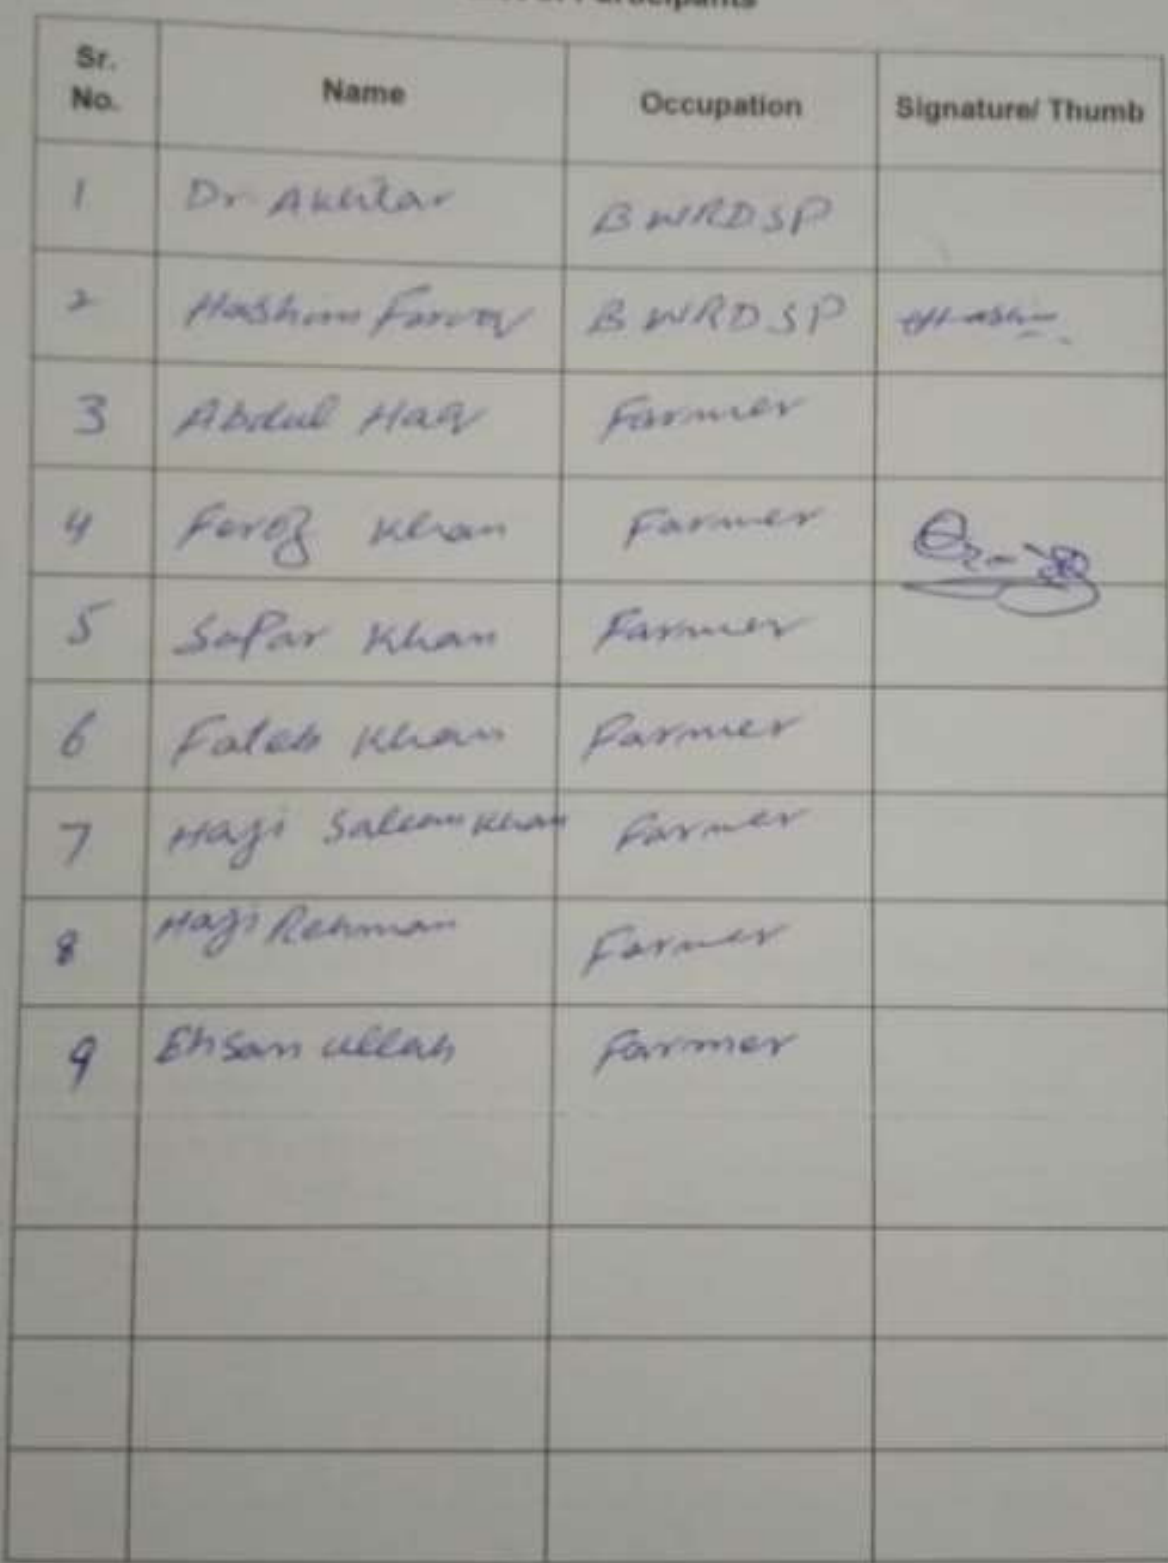 Participants
Sr. No. Name Occupation Signature/ Thumb
1 Dr. Akhtar BWRDSP
2 Hashim Farooq BWRDSP Hashim
3 Abdul Haq Farmer
4 Feroz Khan Farmer
5 Safar Khan Farmer
6 Fateh Khan Farmer
7 Haji Saleem Khan Farmer
8 Haji Rehman Farmer
9 Ehsan ullah Farmer